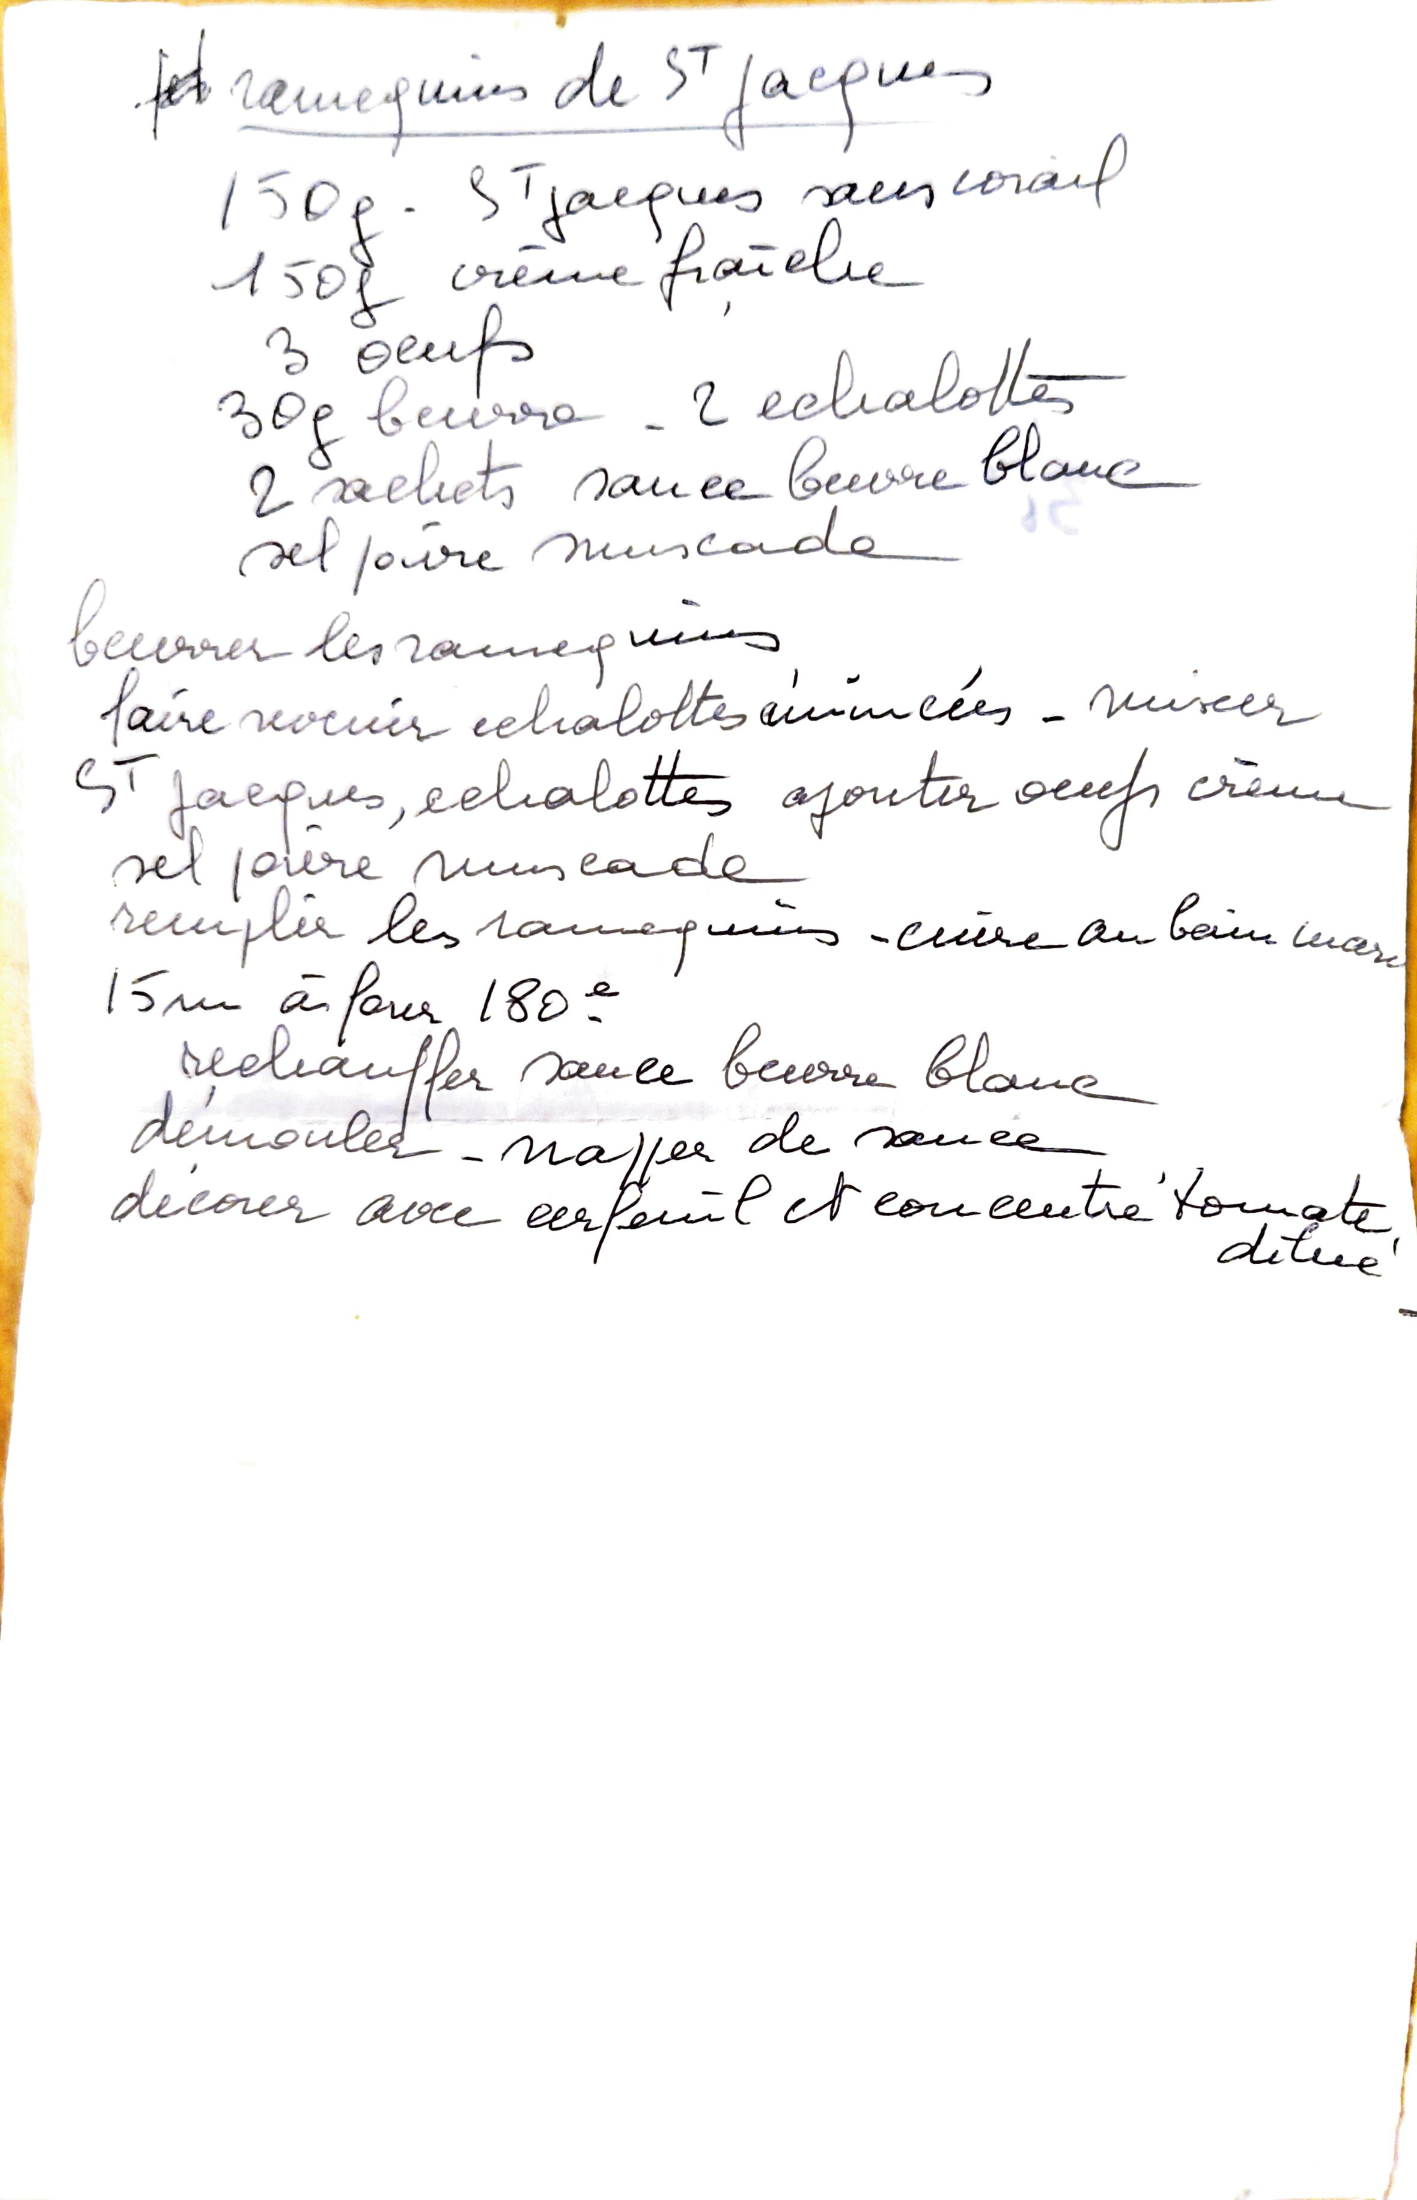 ramequins de St Jacques
150g - St Jacques sans corail
150g crème fraîche
3 oeufs
30g beurre - 2 echalottes
2 sachets sauce beurre blanc
sel poivre muscade
beurrer les ramequins
faire revenir echalottes émincées - mixer
St Jacques, echalottes ajouter oeufs crème
sel poivre muscade
remplir les ramequins - cuire au bain mari
15 m à four 180°
rechauffer sauce beurre blanc
démouler - napper de sauce
décorer avec cerfeuil et concentré tomate
dilué